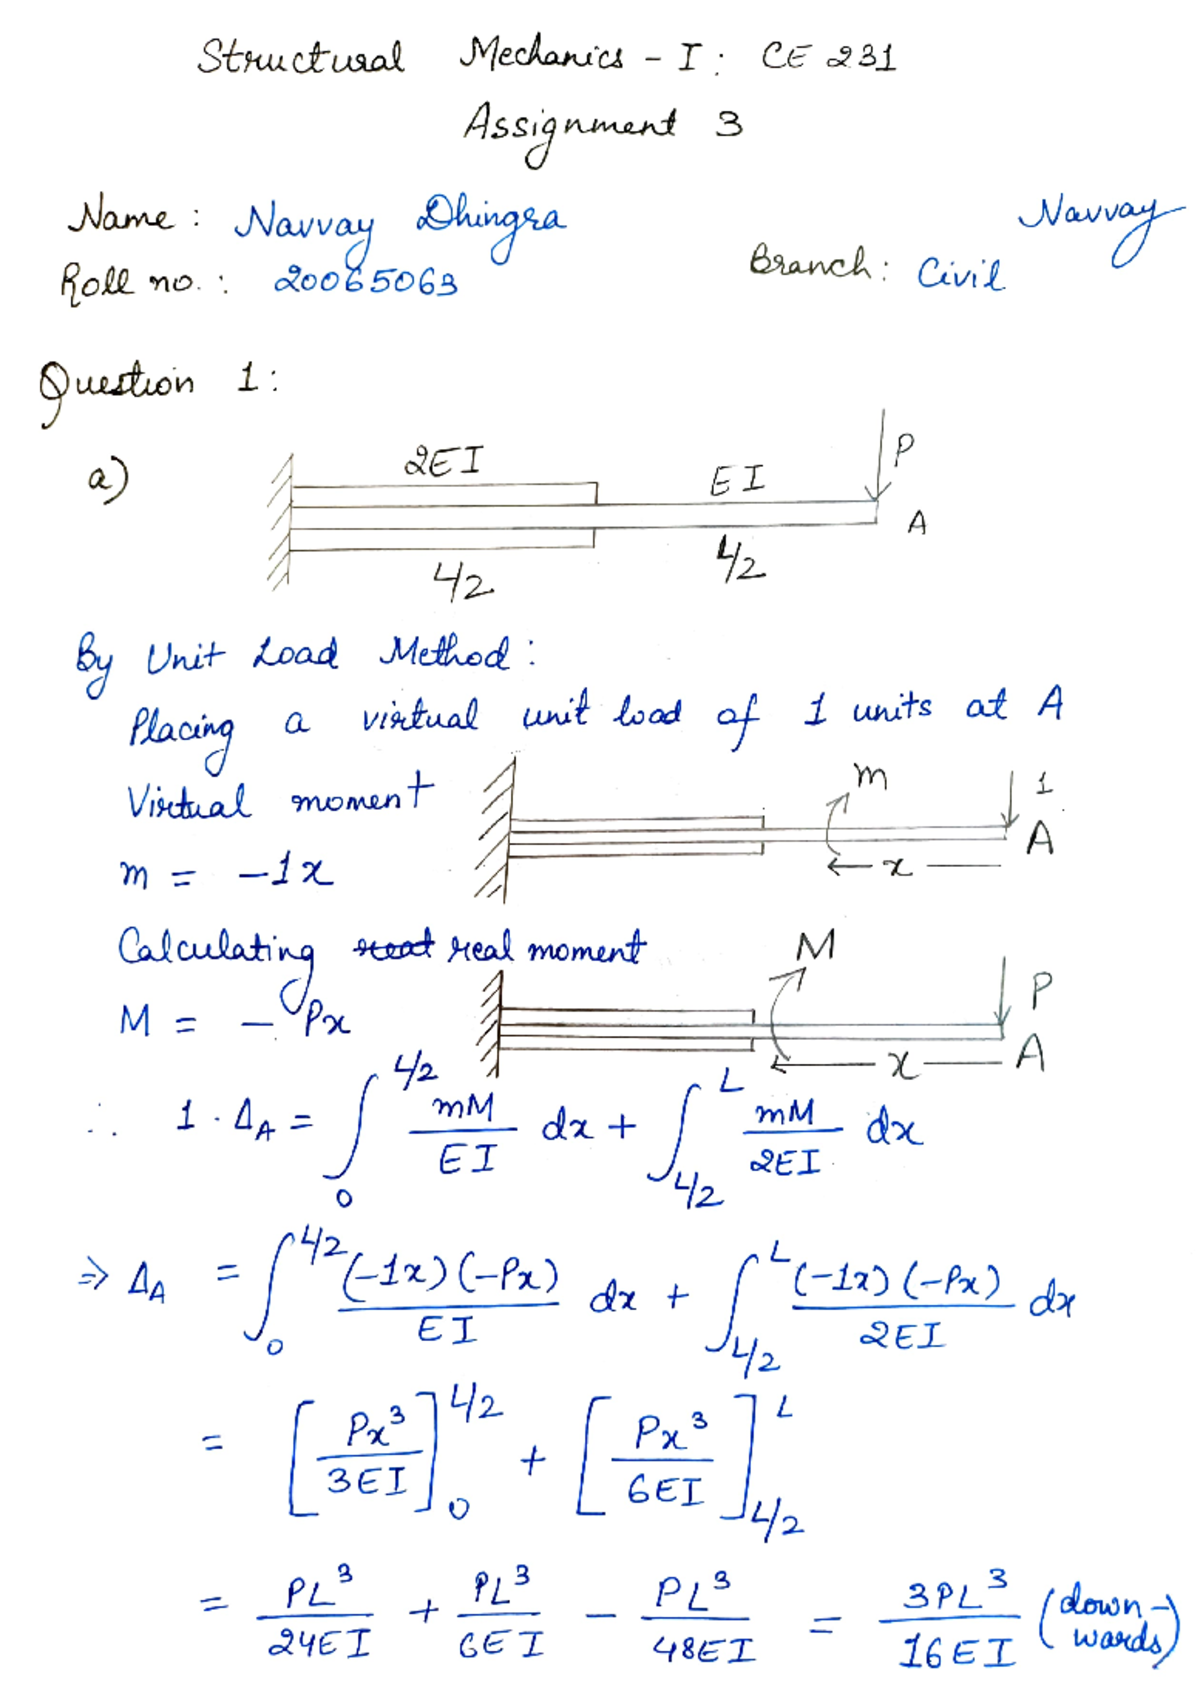 Structural Mechanics - I : CE 231
Assignment 3
Navvay
Name : Navvay Dhingra
Branch : Civil
Roll no. : 20065063
Question 1 :
a)
2EI
EI
P
A
L/2
L/2
By Unit Load Method :
Placing a virtual unit load of 1 units at A
Virtual moment
m
1
A
x
m = -1x
Calculating real moment
M
P
M = - Px
x
A
∴ 1 · Δ_A = ∫_0^{L/2} mM/EI dx + ∫_{L/2}^L mM/2EI dx
⇒ Δ_A = ∫_0^{L/2} (-1x)(-Px)/EI dx + ∫_{L/2}^L (-1x)(-Px)/2EI dx
= [Px³/3EI]_0^{L/2} + [Px³/6EI]_{L/2}^L
= PL³/24EI + PL³/6EI - PL³/48EI = 3PL³/16EI (down-wards)